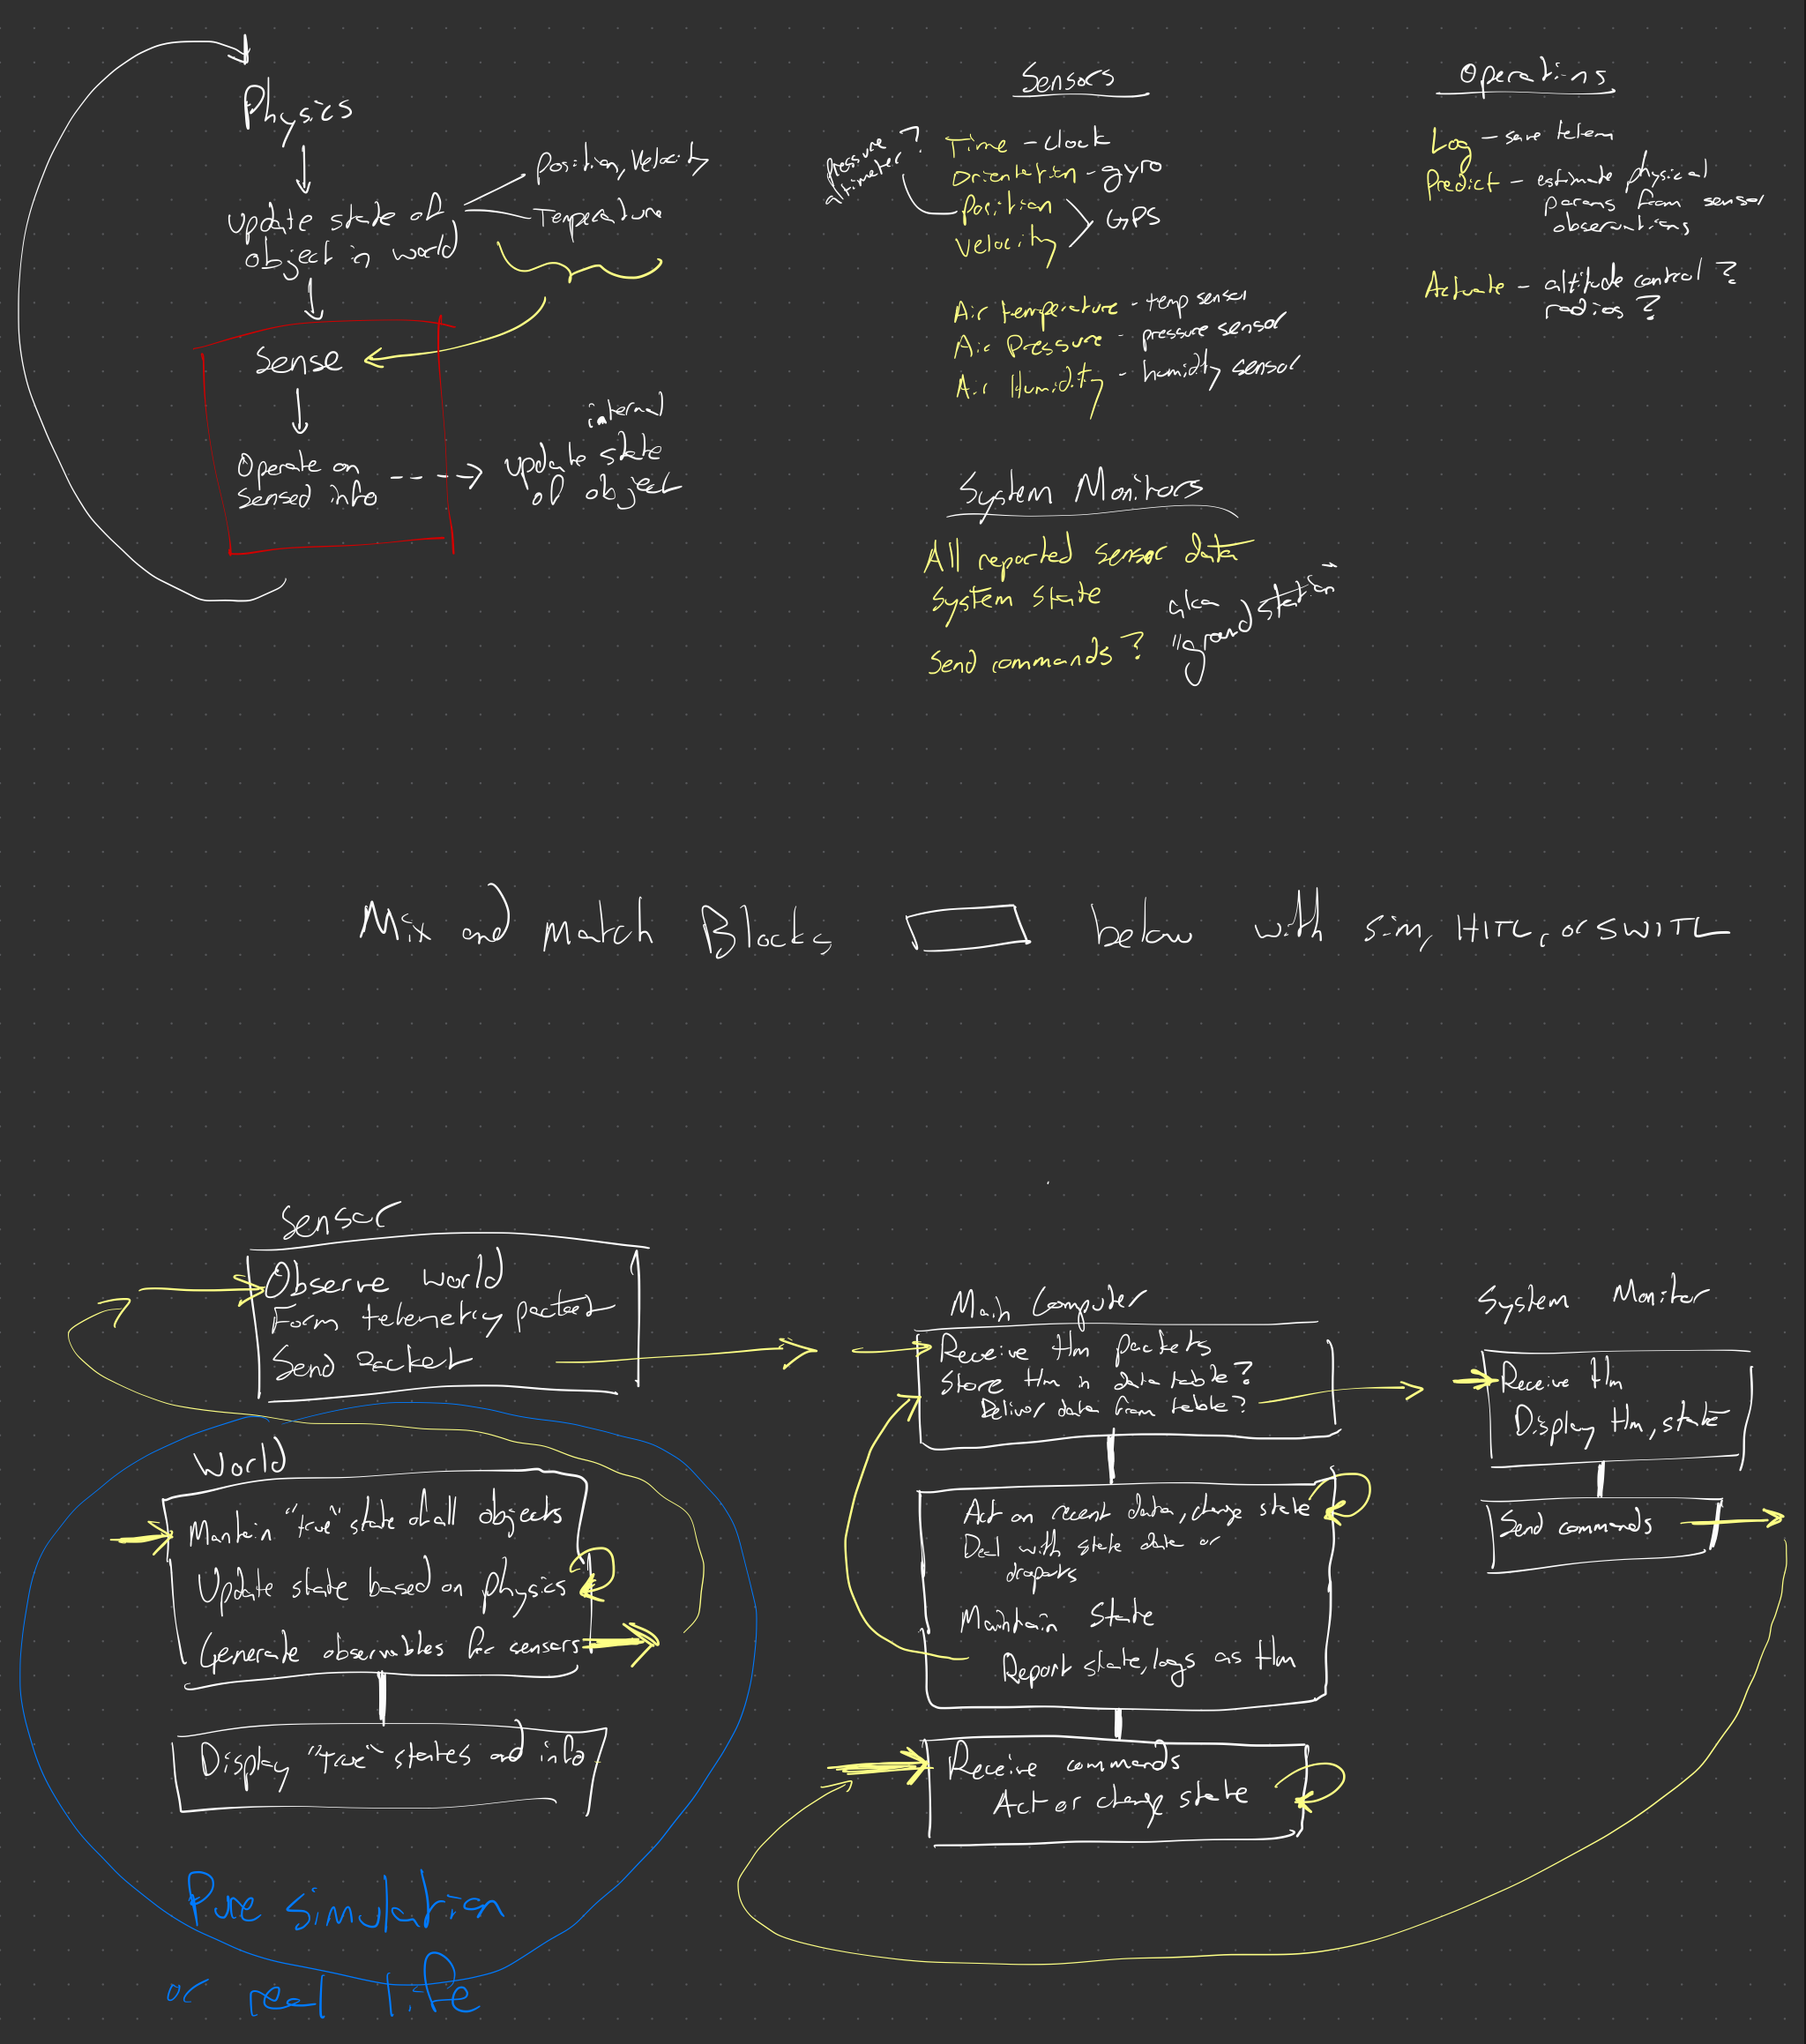 Physics
Update state of
object in world
Position, Velocity
Temperature
Sense
Operate on
sensed info
internal
update state
of object
Sensors
Pressure
altimeter?
Time - clock
Orientation - gyro
Position
Velocity
GPS
Air temperature - temp sensor
Air Pressure - pressure sensor
Air Humidity - humidity sensor
System Monitors
All reported sensor data
System state
Send commands?
aka
"ground station"
Operations
Log - save telem
Predict - estimate physical
params from sensor
observations
Actuate - altitude control?
radios?
Mix and match Blocks below with sim, HITL, or SWITL
Sensor
Observe world
Form telemetry packet
Send packet
World
Maintain "true" state of all objects
Update state based on physics
Generate observables for sensors
Display "true" states and info
Pure simulation
or real life
Main Computer
Receive tlm packets
Store tlm in data table?
Deliver data from table?
Act on recent data, change state
Deal with stale data or
dropouts
Maintain State
Report state, logs as tlm
Receive commands
Act or change state
System Monitor
Receive tlm
Display tlm, state
Send commands